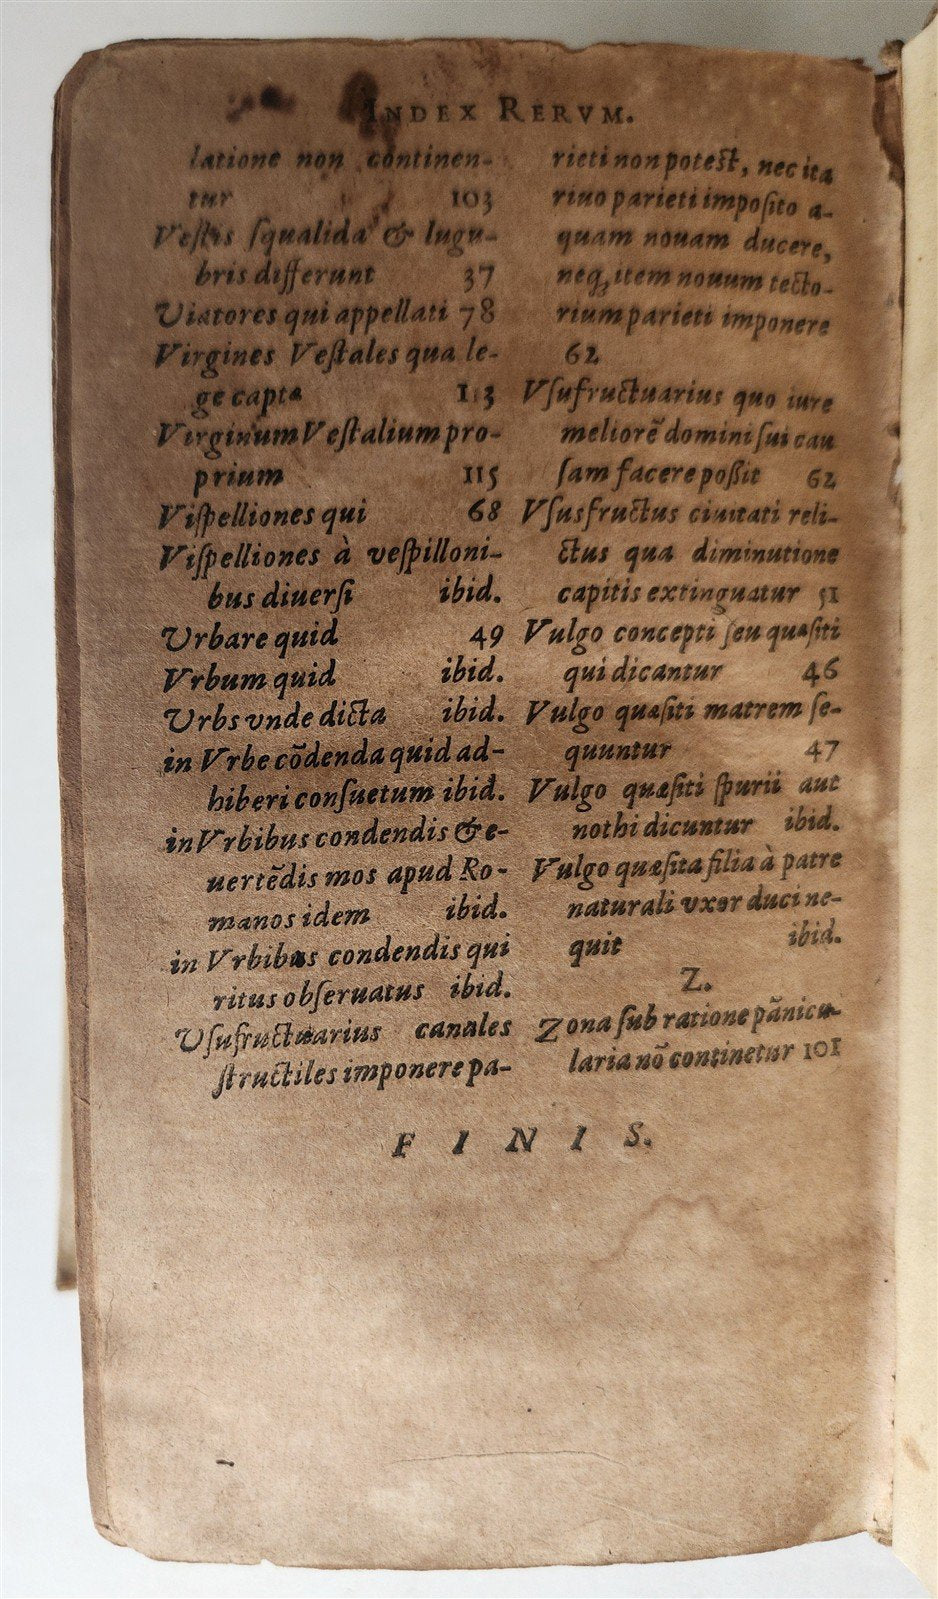 INDEX RERVM.
latione non continen-
tur 103
Veſtis ſqualida & lugu-
bris differunt 37
Viatores qui appellati 78
Virgines Veſtales qua le-
ge captæ 113
Virginum Veſtalium pro-
prium 115
Viſpelliones qui 68
Viſpelliones à veſpilloni-
bus diuerſi ibid.
Vrbare quid 49
Vrbum quid ibid.
Vrbs vnde dicta ibid.
in Vrbe cõdenda quid ad-
hiberi conſuetum ibid.
in Vrbibus condendis & e-
uertẽdis mos apud Ro-
manos idem ibid.
in Vrbibus condendis qui
ritus obſeruatus ibid.
Vſufructuarius canales
ſtructiles imponere pa-
rieti non poteſt, nec ita
riuo parieti impoſito a-
quam nouam ducere,
neq; item nouum tecto-
rium parieti imponere
62
Vſufructuarius quo iure
meliorẽ domini ſui cau
ſam facere poßit 62
Vſusfructus ciuitati reli-
ctus qua diminutione
capitis extinguatur 51
Vulgo concepti ſeu quæſiti
qui dicantur 46
Vulgo quæſiti matrem ſe-
quuntur 47
Vulgo quæſiti ſpurii aut
nothi dicuntur ibid.
Vulgo quæſita filia à patre
naturali vxor duci ne-
quit ibid.
Z.
Zona ſub ratione pãnicu-
laria nõ continetur 101
FINIS.